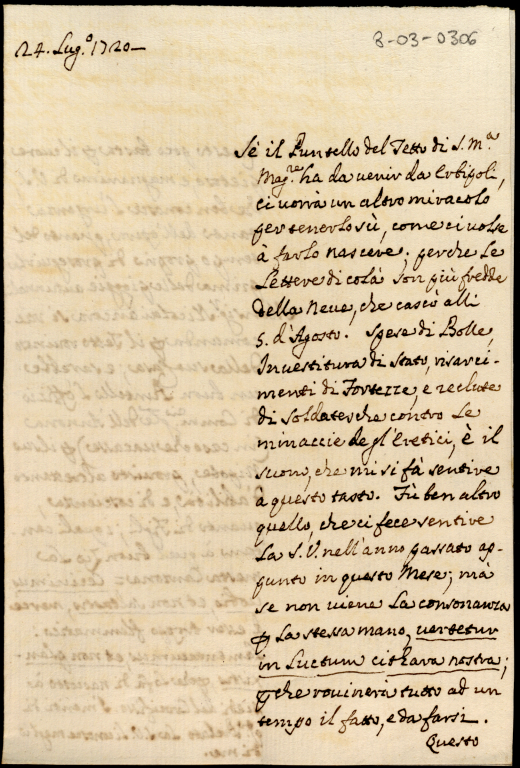 8-03-0306
24. Lug.º 1720
Sè il Puntello del Tetto di S. M.ª
Mag.re ha da venir da Erbipoli,
ci vorrà un altro miracolo
per tenerlo sù, come ci volse
à farlo nascere; perche le
Lettere di colà son più fredde
della Neve, che cascò alli
5. d'Agosto. Spese di Bolle,
Investitura di Stato, risarci-
menti di Fortezze, e reclute
di soldatesche contro le
minaccie degl'Eretici, è il
suono, che mi si fà sentire
à questo tasto. Fù ben altro
quello, che ci fece sentire
La S. V. nell'anno passato ap-
punto in questo Mese; mà
se non viene La consonanza
p La stessa mano, vertetur
in Luctum cithara nostra;
pche rovinerà tutto ad un
tempo il fatto, e da farsi.
Questo